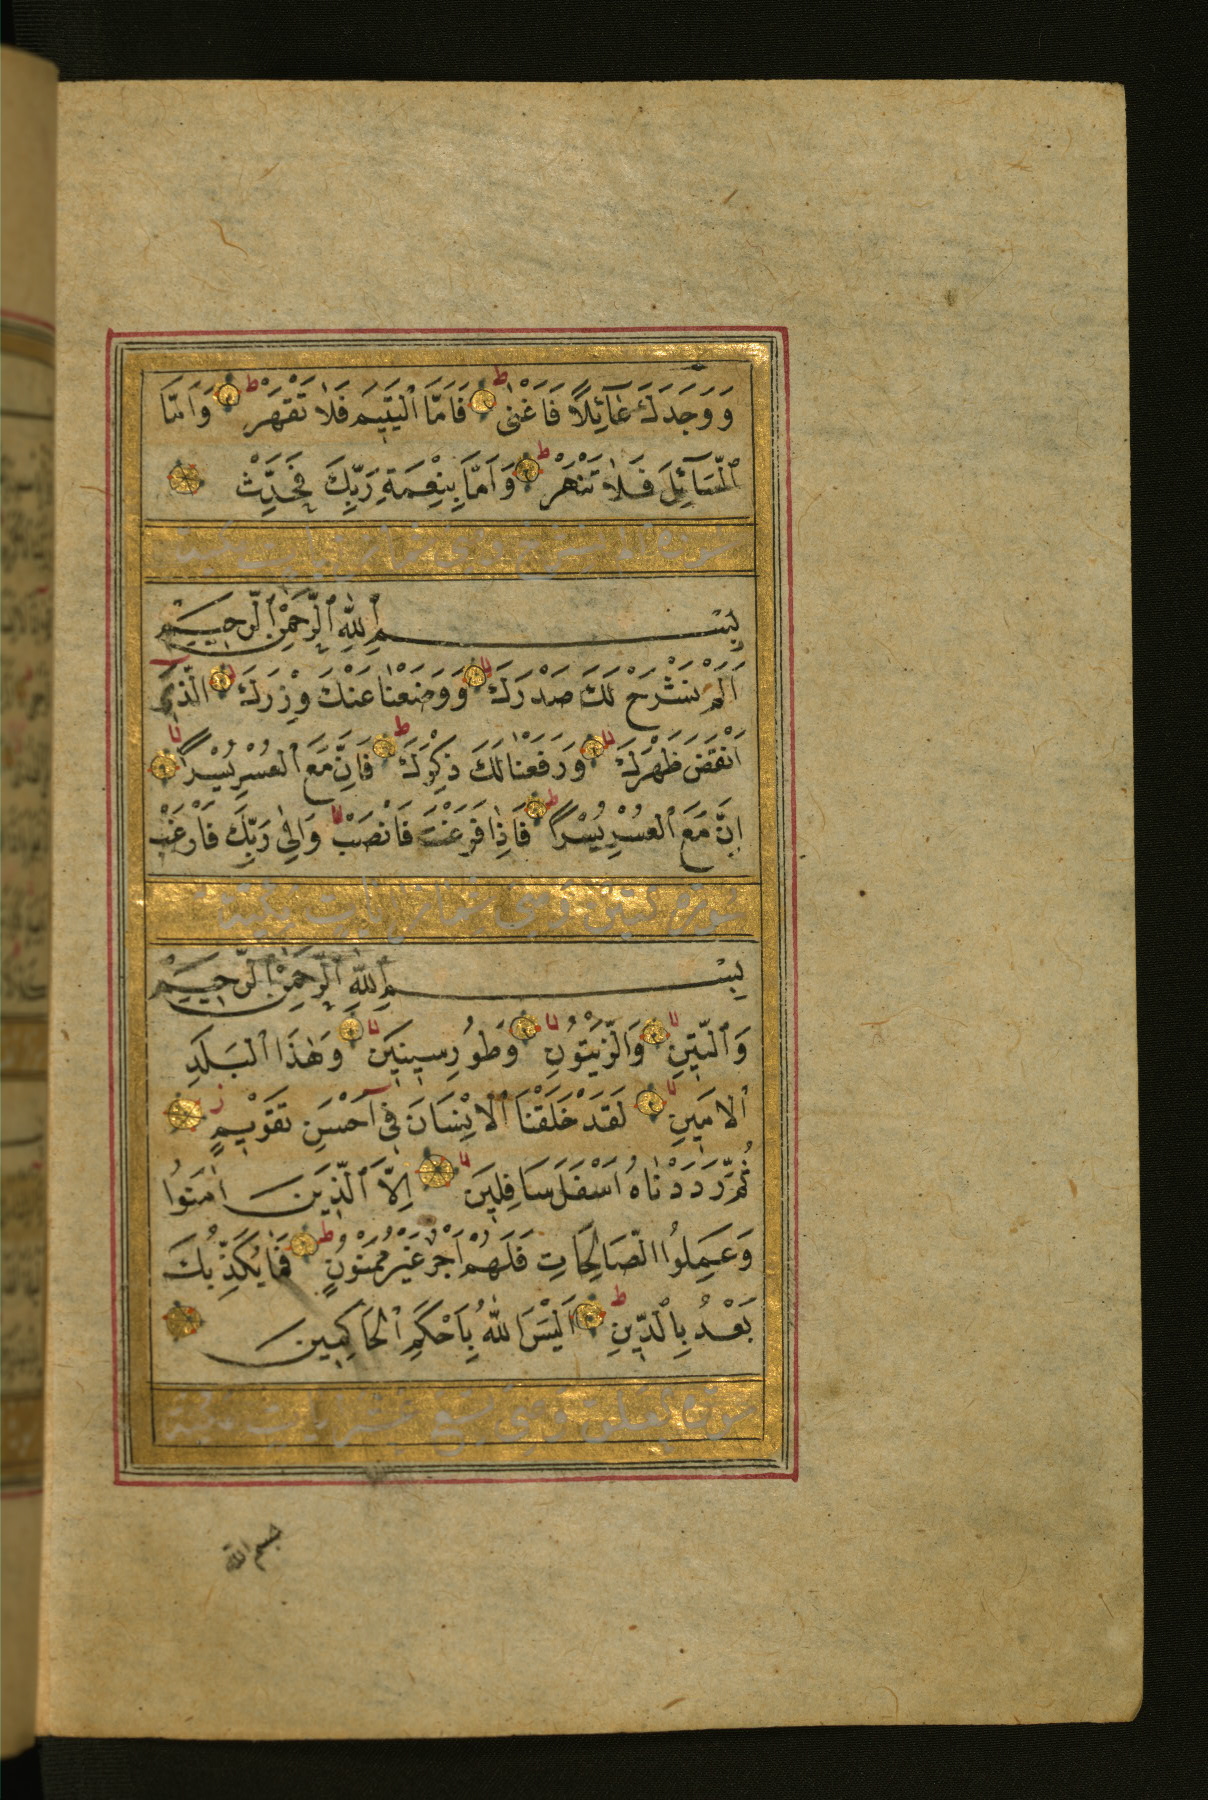 وَوَجَدَكَ عَآئِلًا فَاَغْنٰى فَاَمَّا ٱلْيَتِيمَ فَلَا تَقْهَرْ وَاَمَّا
ٱلسَّآئِلَ فَلَا تَنْهَرْ وَاَمَّا بِنِعْمَةِ رَبِّكَ فَحَدِّثْ
سورة الم نشرح وهي ثمان ايات مكية
بِسْمِ ٱللّٰهِ ٱلرَّحْمٰنِ ٱلرَّحِيمِ
اَلَمْ نَشْرَحْ لَكَ صَدْرَكَ وَوَضَعْنَا عَنْكَ وِزْرَكَ الَّذِى
اَنْقَضَ ظَهْرَكَ وَرَفَعْنَا لَكَ ذِكْرَكَ فَاِنَّ مَعَ ٱلْعُسْرِ يُسْرًا
اِنَّ مَعَ ٱلْعُسْرِ يُسْرًا فَاِذَا فَرَغْتَ فَانْصَبْ وَاِلٰى رَبِّكَ فَارْغَبْ
سورة التين وهي ثمان ايات مكية
بِسْمِ ٱللّٰهِ ٱلرَّحْمٰنِ ٱلرَّحِيمِ
وَٱلتِّينِ وَٱلزَّيْتُونِ وَطُورِ سِينِينَ وَهٰذَا ٱلْبَلَدِ
ٱلْاَمِينِ لَقَدْ خَلَقْنَا ٱلْاِنْسَانَ فِىٓ اَحْسَنِ تَقْوِيمٍ
ثُمَّ رَدَدْنَاهُ اَسْفَلَ سَافِلِينَ اِلَّا ٱلَّذِينَ اٰمَنُوا
وَعَمِلُوا الصَّالِحَاتِ فَلَهُمْ اَجْرٌ غَيْرُ مَمْنُونٍ فَمَا يُكَذِّبُكَ
بَعْدُ بِالدِّينِ اَلَيْسَ اللّٰهُ بِاَحْكَمِ ٱلْحَاكِمِينَ
سورة العلق وهي تسع عشر ايات مكية
بسم الله